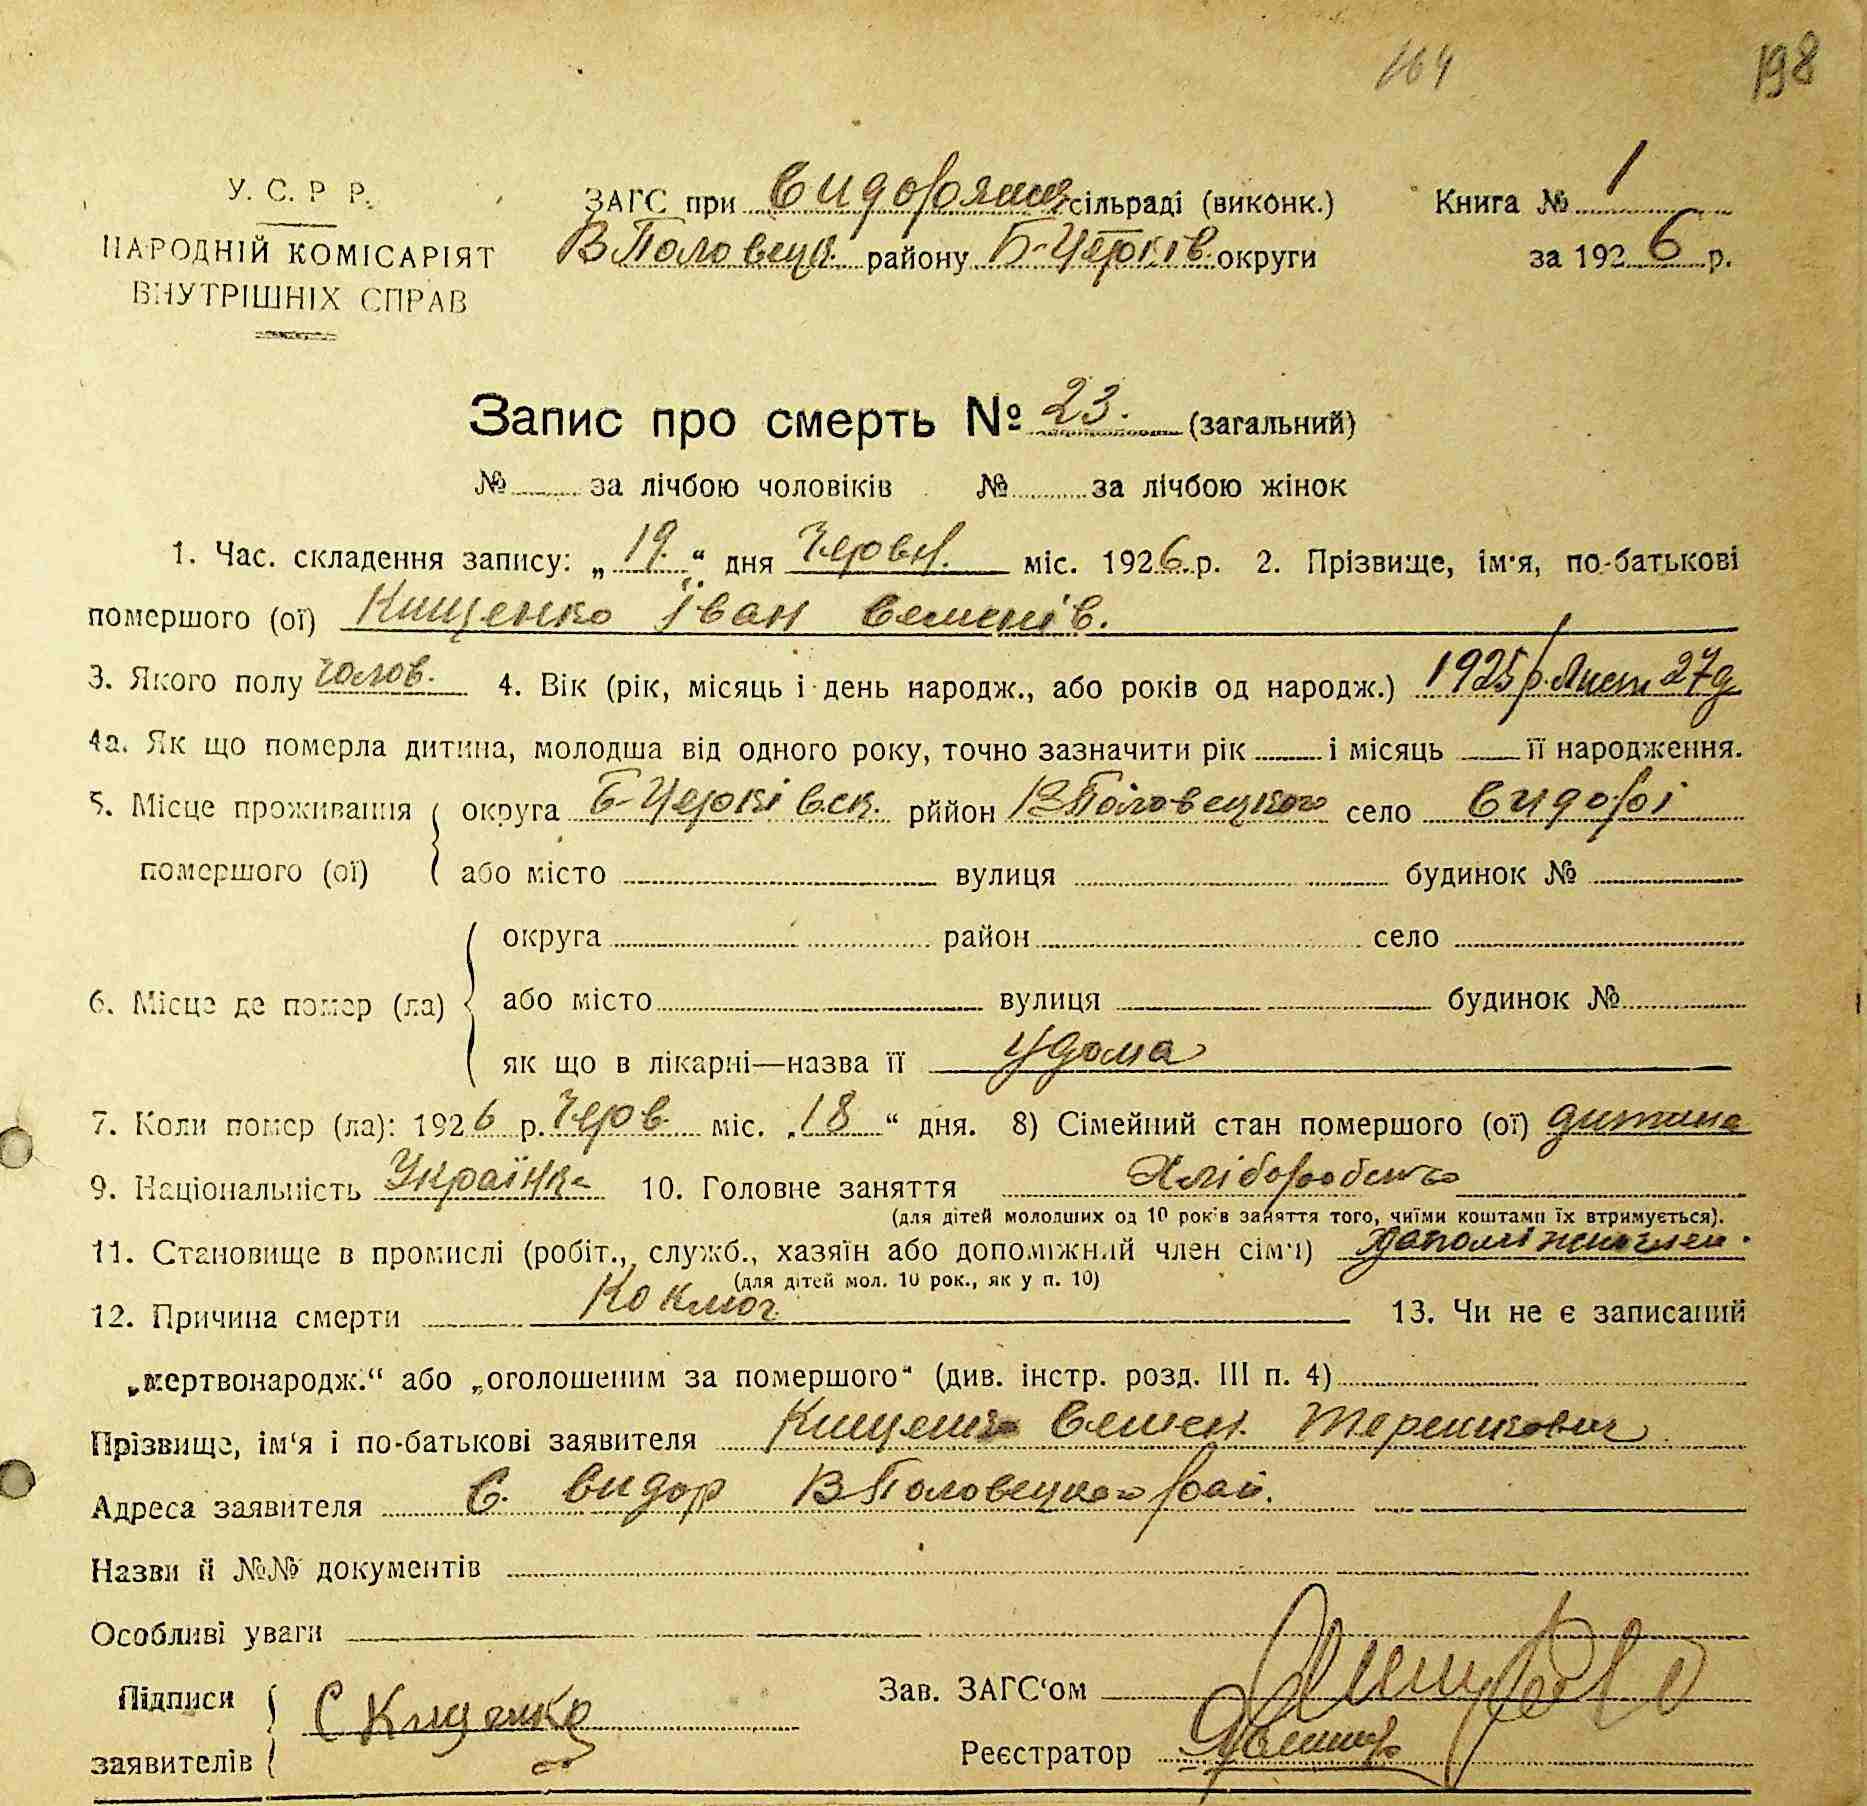 164 198
У. С. Р Р.
НАРОДНІЙ КОМІСАРІЯТ
ВНУТРІШНІХ СПРАВ
ЗАГС при Сидорянск сільраді (виконк.) Книга № 1
В Половецк. району Б-Церків. округи за 1926 р.
Запис про смерть № 23. (загальний)
№ за лічбою чоловіків № за лічбою жінок
1. Час. складення запису: „19.“ дня Червн. міс. 1926 р. 2. Прізвище, ім'я, по-батькові
помершого (ої) Кищенко Іван Семенів.
3. Якого полу Чолов. 4. Вік (рік, місяць і день народж., або років од народж.) 1925 р. Лист 27 д
4а. Як що померла дитина, молодша від одного року, точно зазначити рік і місяць її народження.
5. Місце проживання помершого (ої) округа Б-Церківск. рййон В Половецкого село Сидорі
або місто вулиця будинок №
6. Місце де помер (ла) округа район село
або місто вулиця будинок №
як що в лікарні—назва її Удома
7. Коли помер (ла): 1926 р. Черв міс. „18“ дня. 8) Сімейний стан помершого (ої) дитина
9. Національність Українк. 10. Головне заняття Хліборобств
(для дітей молодших од 10 років заняття того, чиїми коштами їх втримується).
11. Становище в промислі (робіт., служб., хазяїн або допоміжний член сім'ї) Допоміжн член.
(для дітей мол. 10 рок., як у п. 10)
12. Причина смерти Коклюг 13. Чи не є записаний
„мертвонародж.“ або „оголошеним за помершого“ (див. інстр. розд. III п. 4)
Прізвище, ім'я і по-батькові заявителя Кищенко Семен. Терешкович
Адреса заявителя С. Сидор В Половецкого рай.
Назви й №№ документів
Особливі уваги
Підписи заявителів С Кищенко
Зав. ЗАГС'ом
Реєстратор